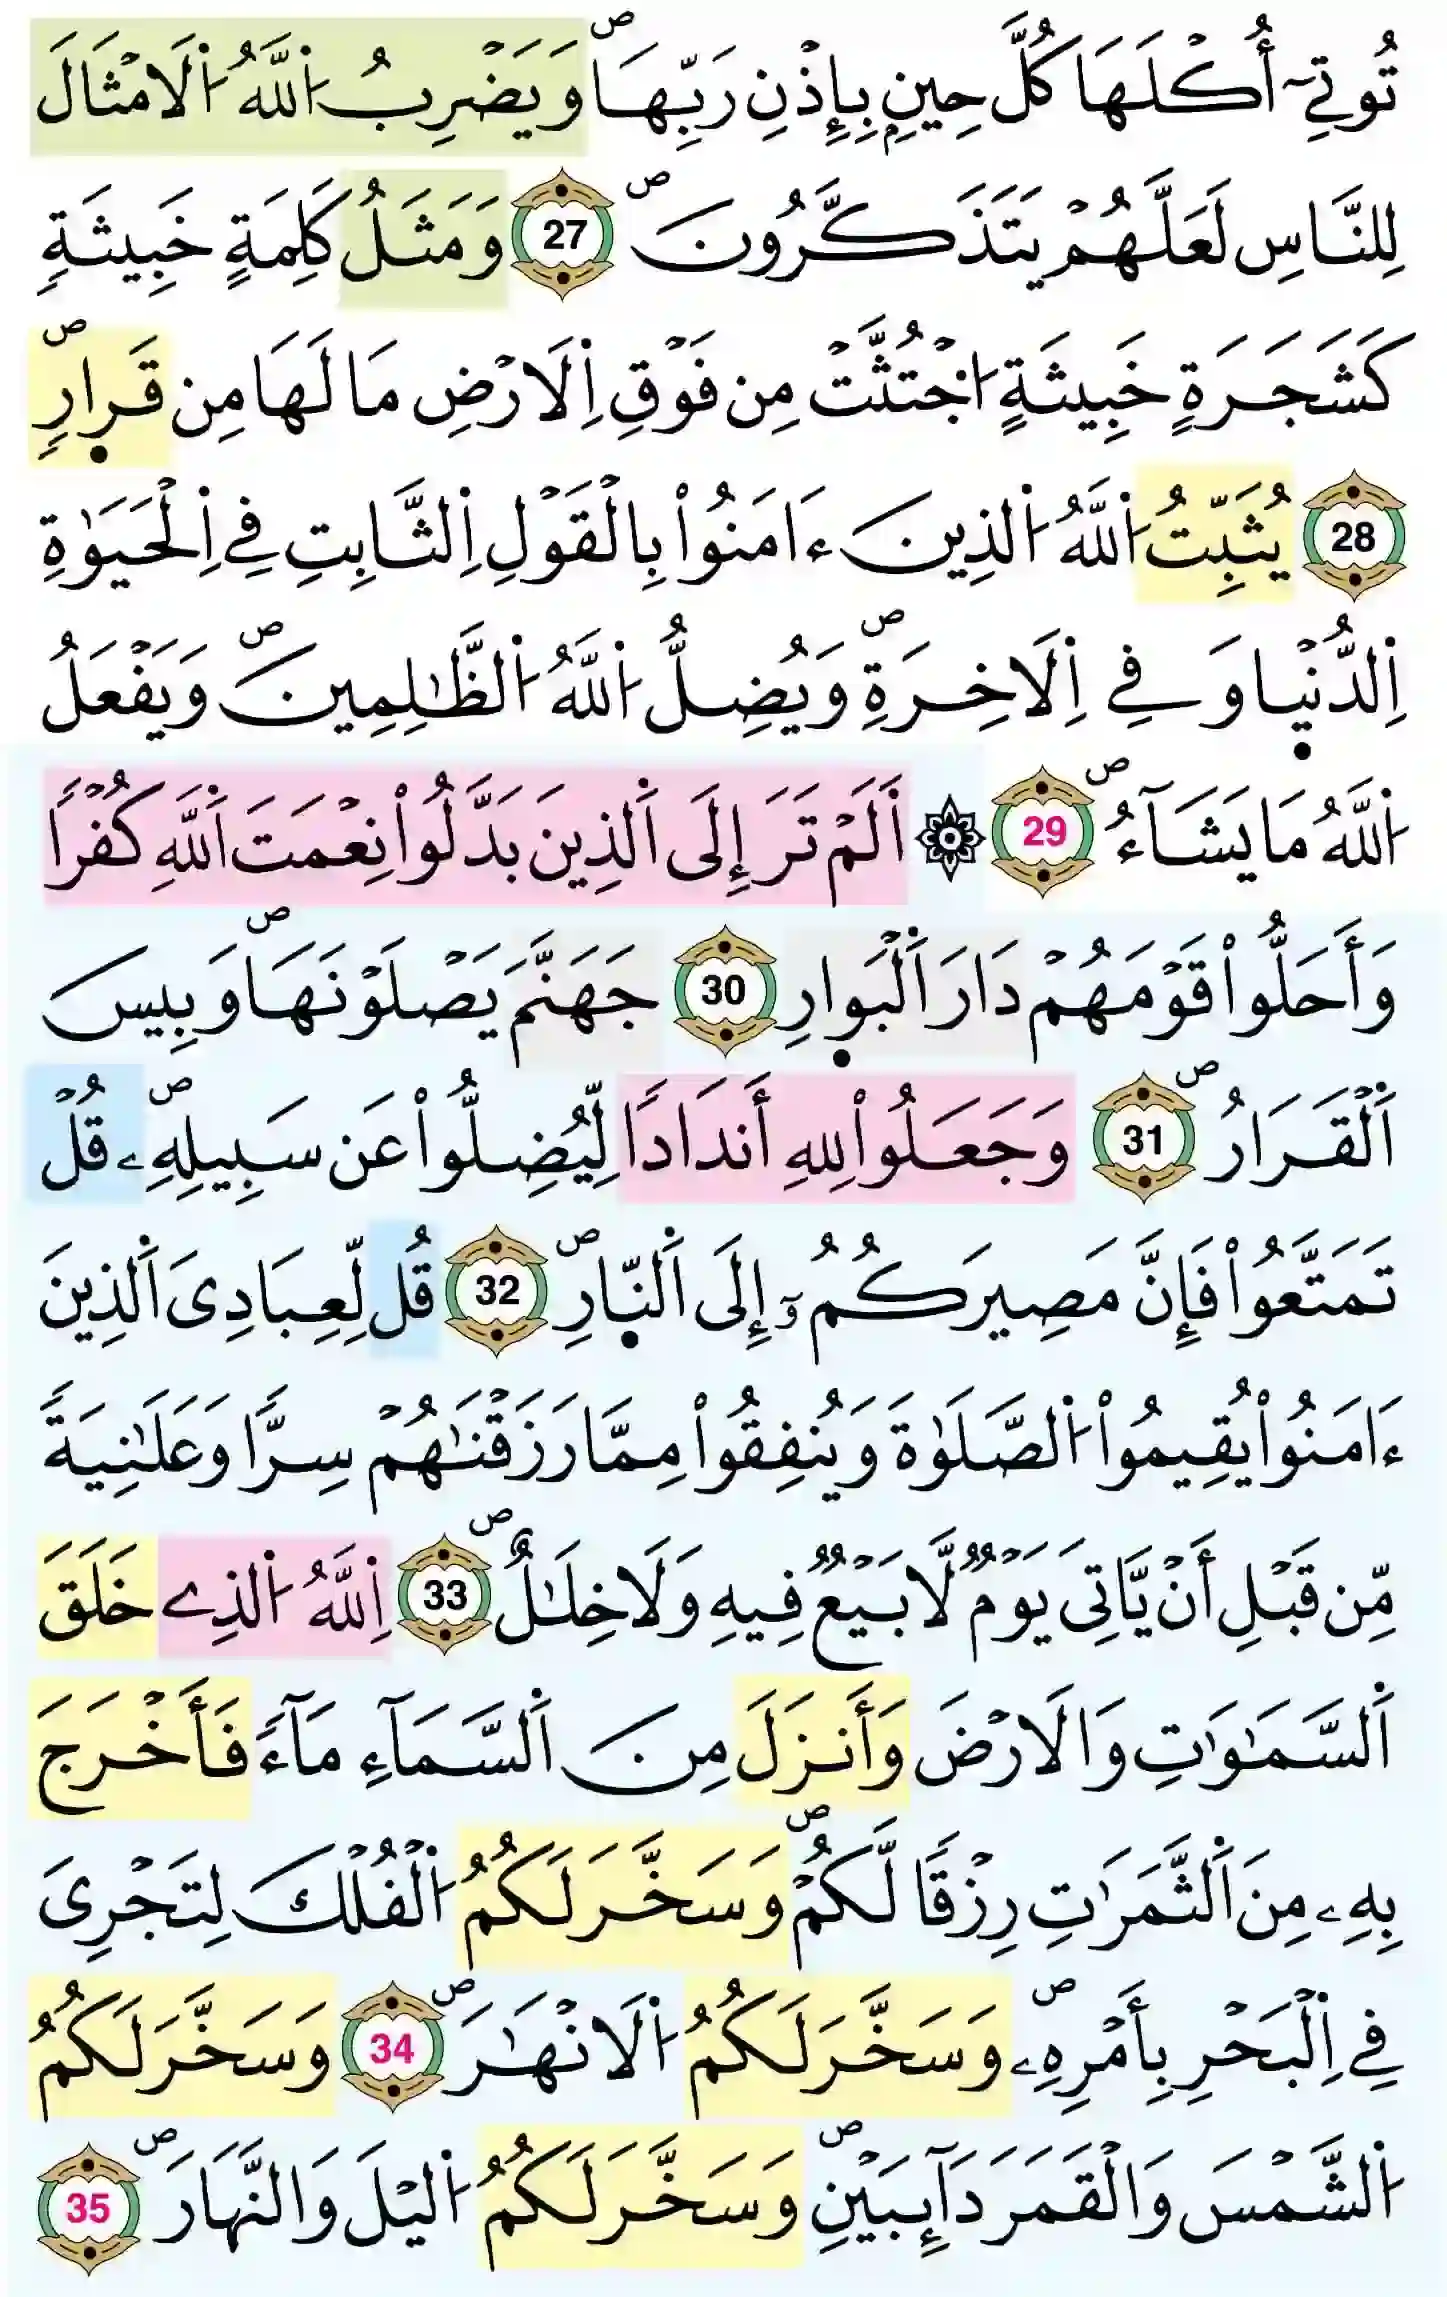 تُوتِےٓ أُكْلَهَا كُلَّ حِينِۢ بِإِذْنِ رَبِّهَاۖ وَيَضْرِبُ اُ۬للَّهُ اُ۬لَامْثَالَ
لِلنَّاسِ لَعَلَّهُمْ يَتَذَكَّرُونَۖ 27 وَمَثَلُ كَلِمَةٍ خَبِيثَةٖ
كَشَجَرَةٍ خَبِيثَةٍ اُ۟جْتُثَّتْ مِن فَوْقِ اِ۬لَارْضِ مَا لَهَا مِن قَر۪ارٖۖ
28 يُثَبِّتُ اُ۬للَّهُ اُ۬لذِينَ ءَامَنُواْ بِالْقَوْلِ اِ۬لثَّابِتِ فِے اِ۬لْحَيَوٰةِ
اِ۬لدُّنْي۪ا وَفِے اِ۬لَاخِرَةِۖ وَيُضِلُّ اُ۬للَّهُ اُ۬لظَّٰلِمِينَۖ وَيَفْعَلُ
اُ۬للَّهُ مَا يَشَآءُۖ 29 ۞ أَلَمْ تَرَ إِلَى اَ۬لذِينَ بَدَّلُواْ نِعْمَتَ اَ۬للَّهِ كُفْراٗ
وَأَحَلُّواْ قَوْمَهُمْ دَارَ اَ۬لْبَو۪ارِ 30 جَهَنَّمَ يَصْلَوْنَهَاۖ وَبِيسَ
اَ۬لْقَرَارُۖ 31 وَجَعَلُواْ لِلهِ أَندَاداٗ لِّيُضِلُّواْ عَن سَبِيلِهِۦۖ قُلْ
تَمَتَّعُواْ فَإِنَّ مَصِيرَكُمُۥٓ إِلَى اَ۬لنّ۪ارِۖ 32 قُل لِّعِبَادِىَ اَ۬لذِينَ
ءَامَنُواْ يُقِيمُواْ اُ۬لصَّلَوٰةَ وَيُنفِقُواْ مِمَّا رَزَقْنَٰهُمْ سِرّاٗ وَعَلَٰنِيَةٗ
مِّن قَبْلِ أَنْ يَّاتِىَ يَوْمٞ لَّا بَيْعٞ فِيهِ وَلَا خِلَٰلٌۖ 33 اِ۬للَّهُ اُ۬لذِے خَلَقَ
اَ۬لسَّمَٰوَٰتِ وَالَارْضَ وَأَنزَلَ مِنَ اَ۬لسَّمَآءِ مَآءٗ فَأَخْرَجَ
بِهِۦ مِنَ اَ۬لثَّمَرَٰتِ رِزْقاٗ لَّكُمْۖ وَسَخَّرَ لَكُمُ اُ۬لْفُلْكَ لِتَجْرِىَ
فِے اِ۬لْبَحْرِ بِأَمْرِهِۦۖ وَسَخَّرَ لَكُمُ اُ۬لَانْهَٰرَۖ 34 وَسَخَّرَ لَكُمُ
اُ۬لشَّمْسَ وَالْقَمَرَ دَآئِبَيْنِۖ وَسَخَّرَ لَكُمُ اُ۬ليْلَ وَالنَّهَارَۖ 35